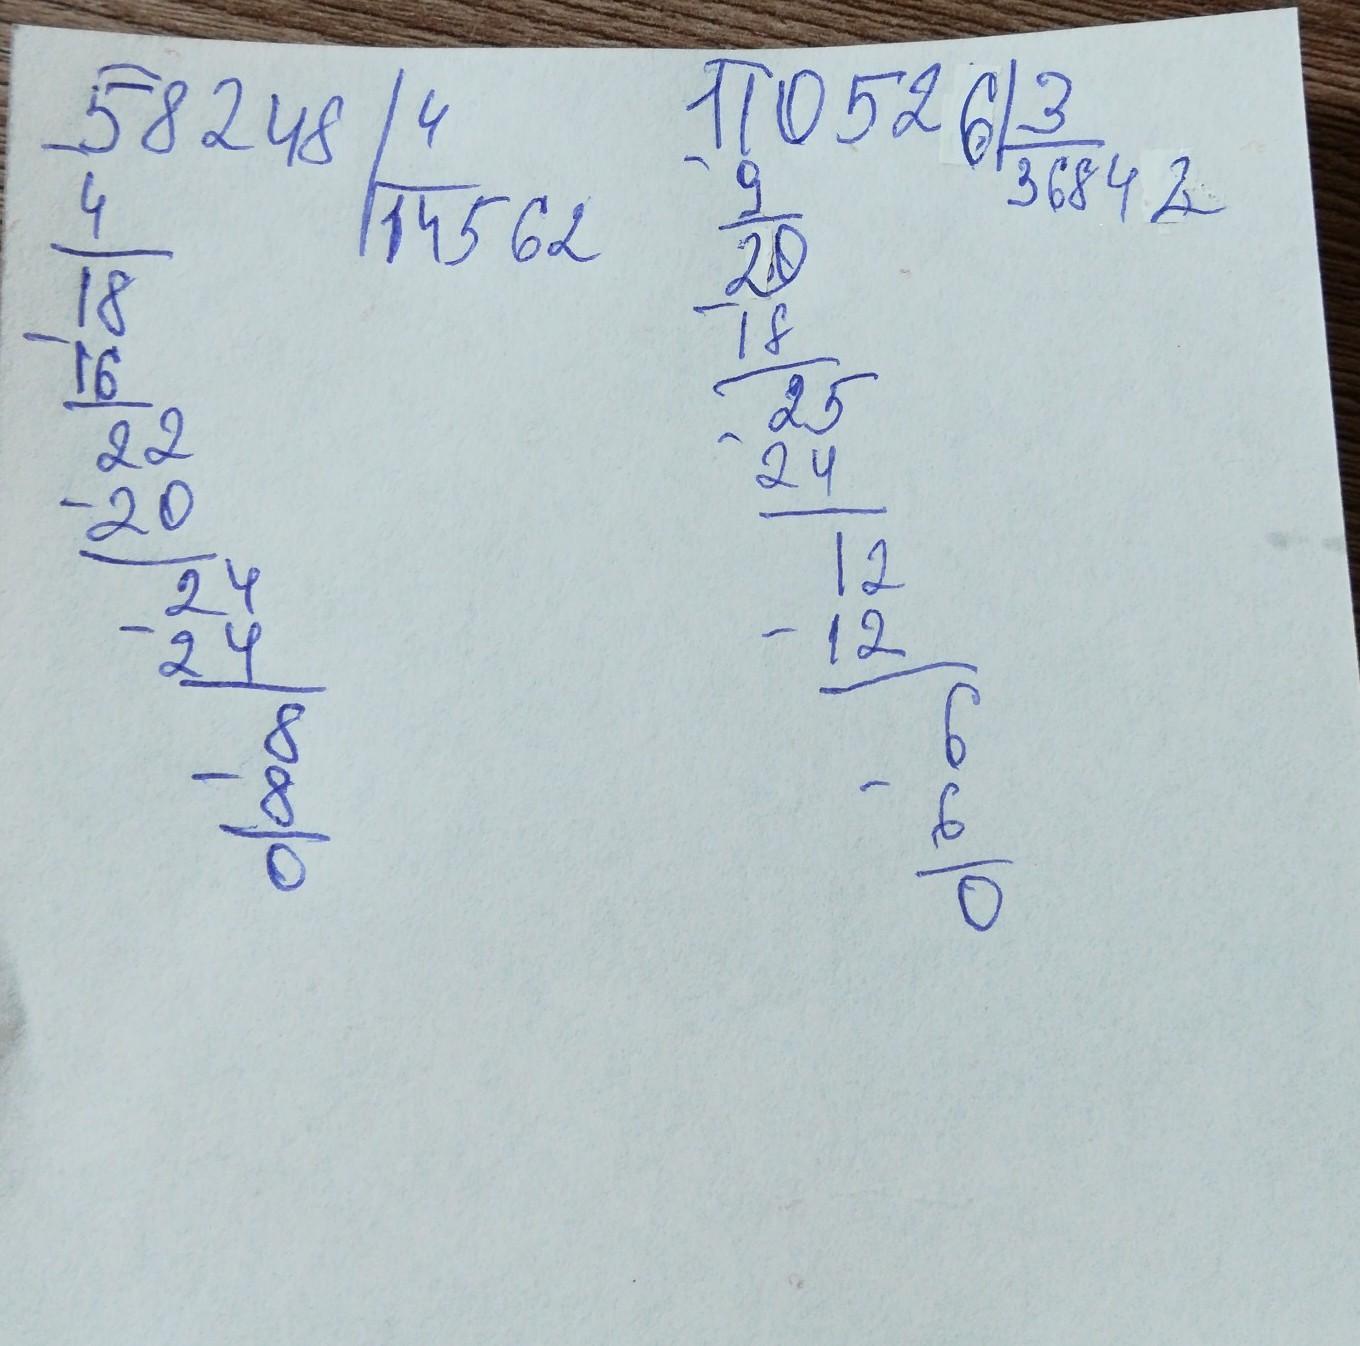 58248 4
14562
4
18
16
22
20
24
24
8
8
0
110526 3
36842
9
20
18
25
24
12
12
6
6
0